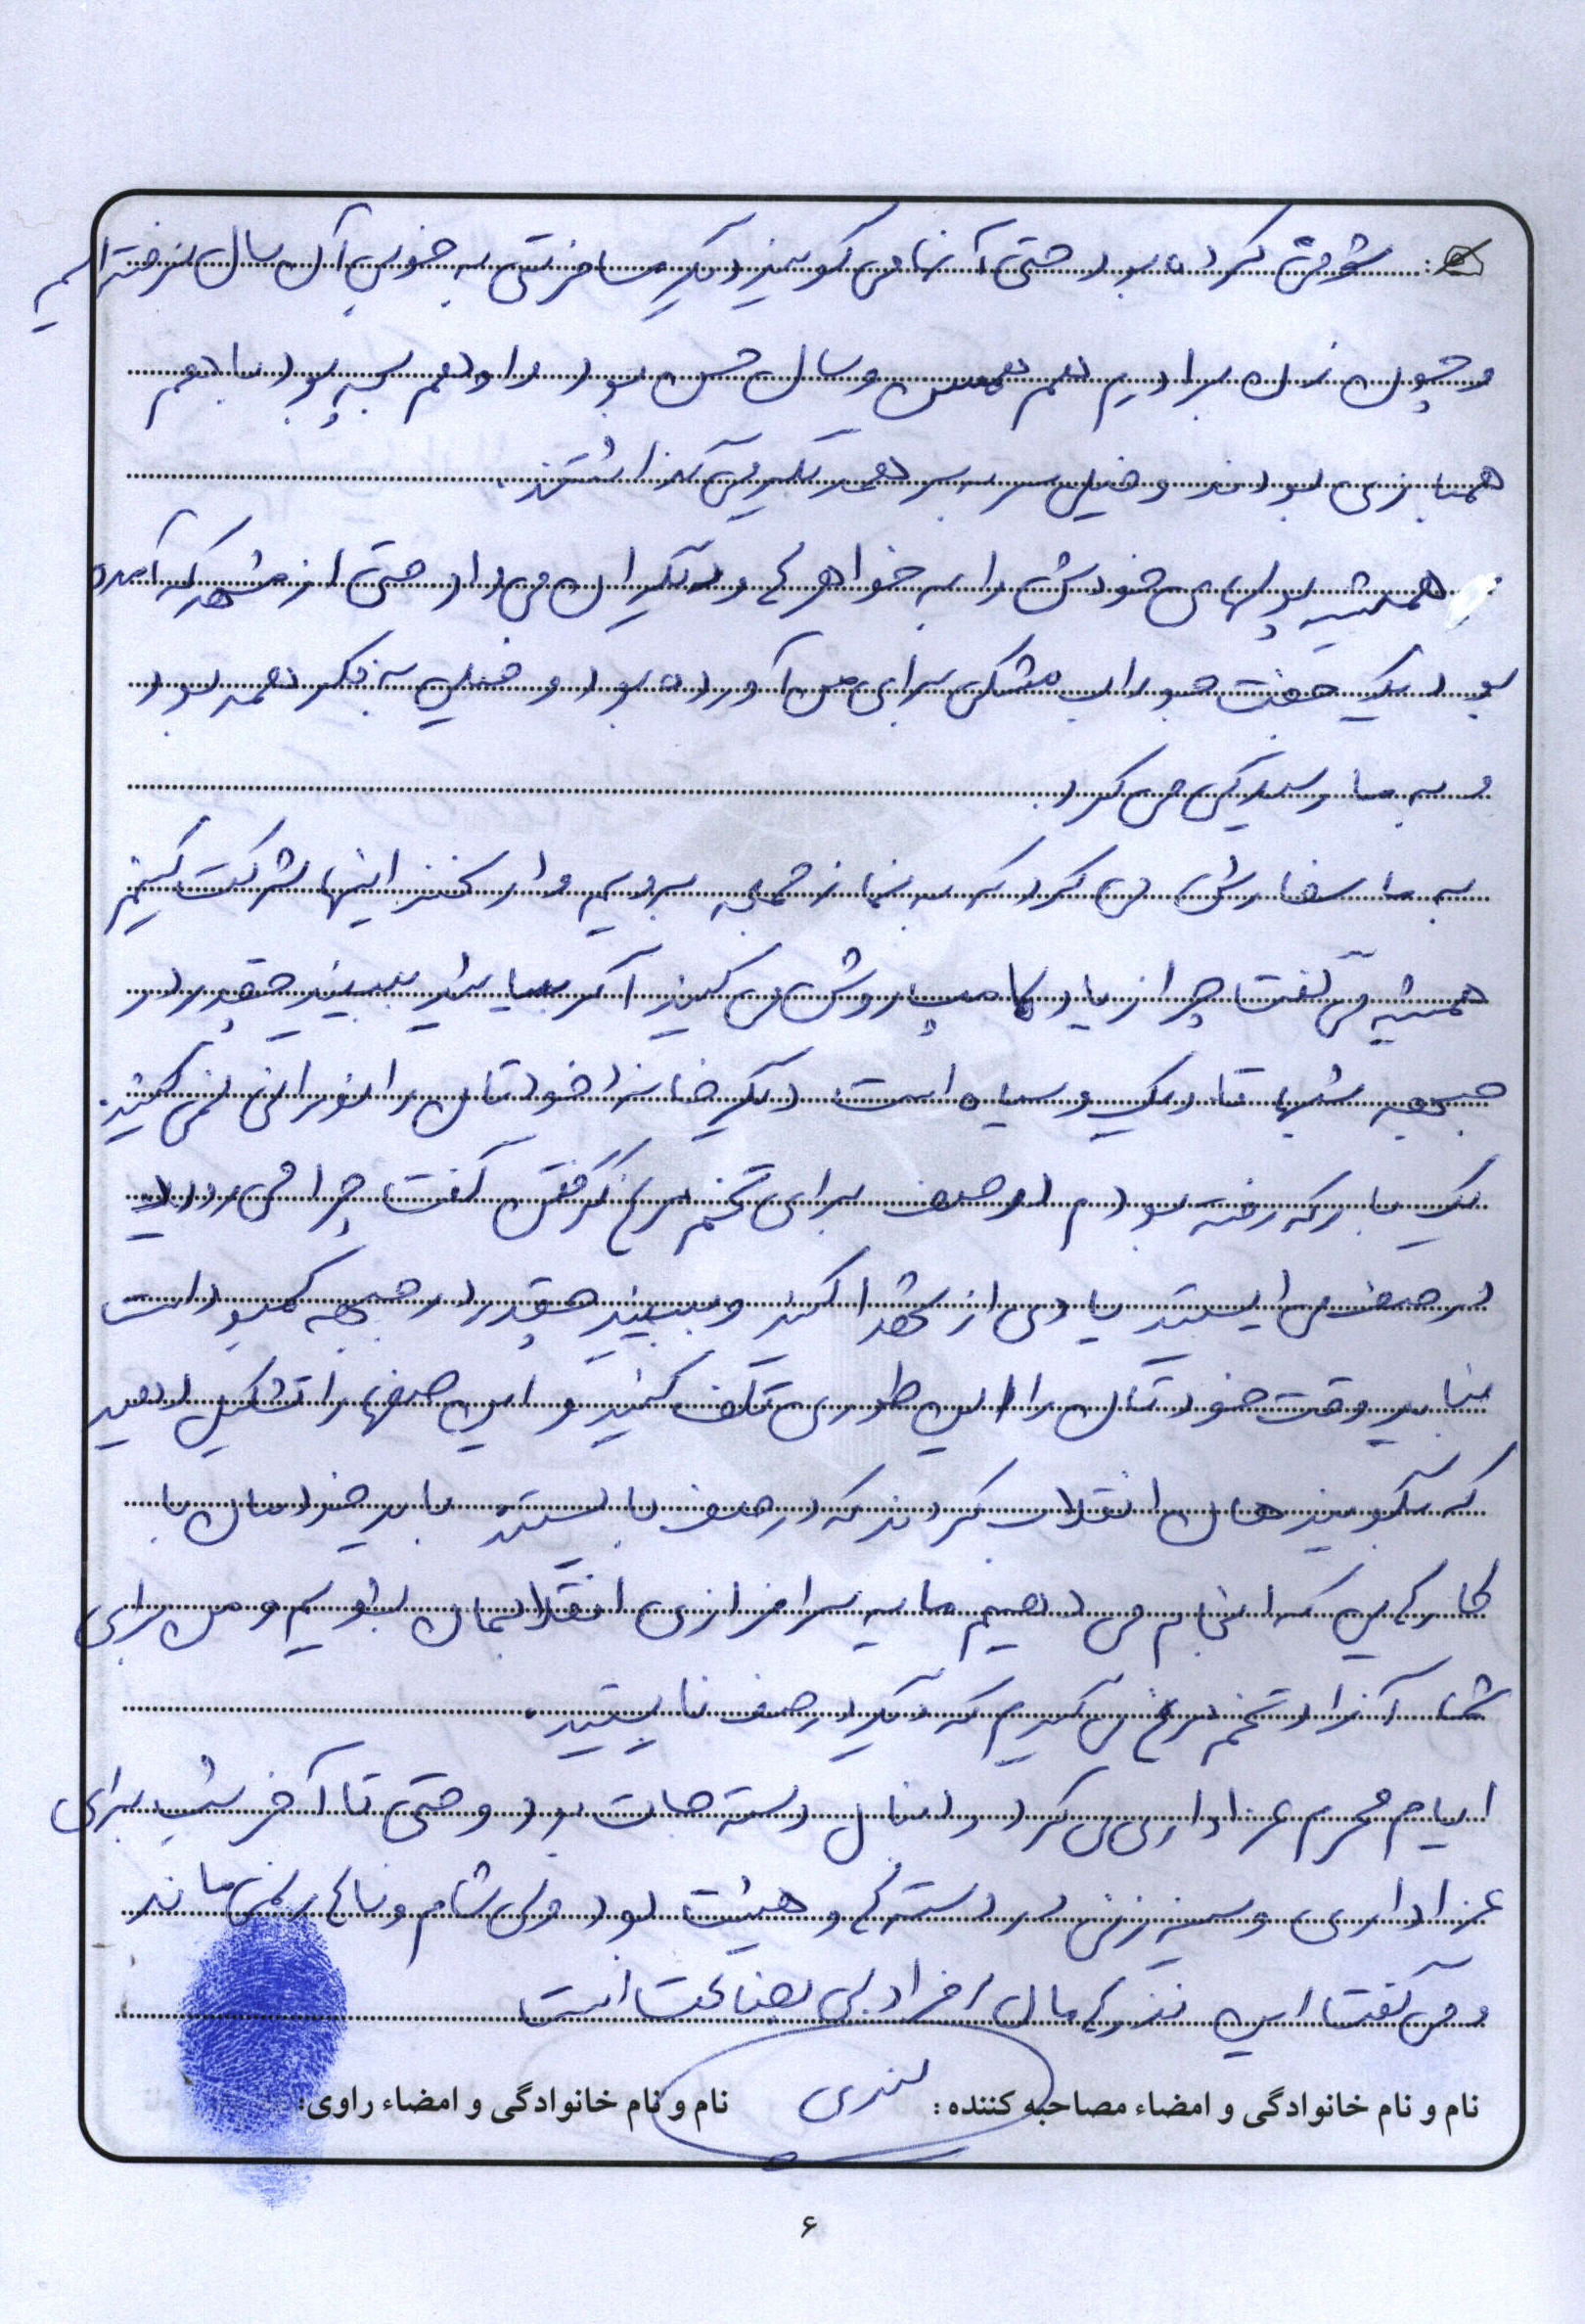 شوخی کرده بود حتی آنها می گویند دیگر مسافرتی به خوبی آن سال نرفته ایم
و چون زن برادرم هم همسن و سال حسن بود و او هم بچه بود با هم
همبازی بودند و خیلی سر به سر همدیگر می گذاشتند.
همیشه پولهای خودش را به خواهرها و دیگران می داد حتی از مشهد که آمده
بود یک جفت جوراب مشکی برای من آورده بود و خیلی به فکر همه بود
و به ما رسیدگی می کرد.
به ما سفارش می کرد که به نماز جمعه برویم و در سخنرانیها شرکت کنیم
همیشه می گفت چرا زیاد لامپ روشن می کنید اگر بیایید ببینید چقدر در
جبهه شبها تاریک و سیاه است دیگر خانه خودتان را نورانی نمی کنید.
یک بار که رفته بودم در صف برای تخم مرغ گرفتن گفت چرا می روید
در صف می ایستید یادی از شهدا کنید و ببینید چقدر در جبهه کمبود است
نباید وقت خودتان را این طوری تلف کنید و این صفها را تشکیل دهید
که بگویند هان انقلاب کردند که در صف بایستند باید خودمان با
کارهایی که انجام می دهیم مایه سرافرازی انقلابمان بشویم و من برای
شما آزاد تخم مرغ می گیرم که دیگر در صف نایستید.
ایام محرم عزاداری می کرد و دنبال دسته جات بود و حتی تا آخر شب برای
عزاداری و سینه زنی در دسته ها و هیئت بود ولی شام و ناهار نمی ماند
و می گفت این نذرها مال افراد بی بضاعت است
نام و نام خانوادگی و امضاء مصاحبه کننده: نام و نام خانوادگی و امضاء راوی:
۶